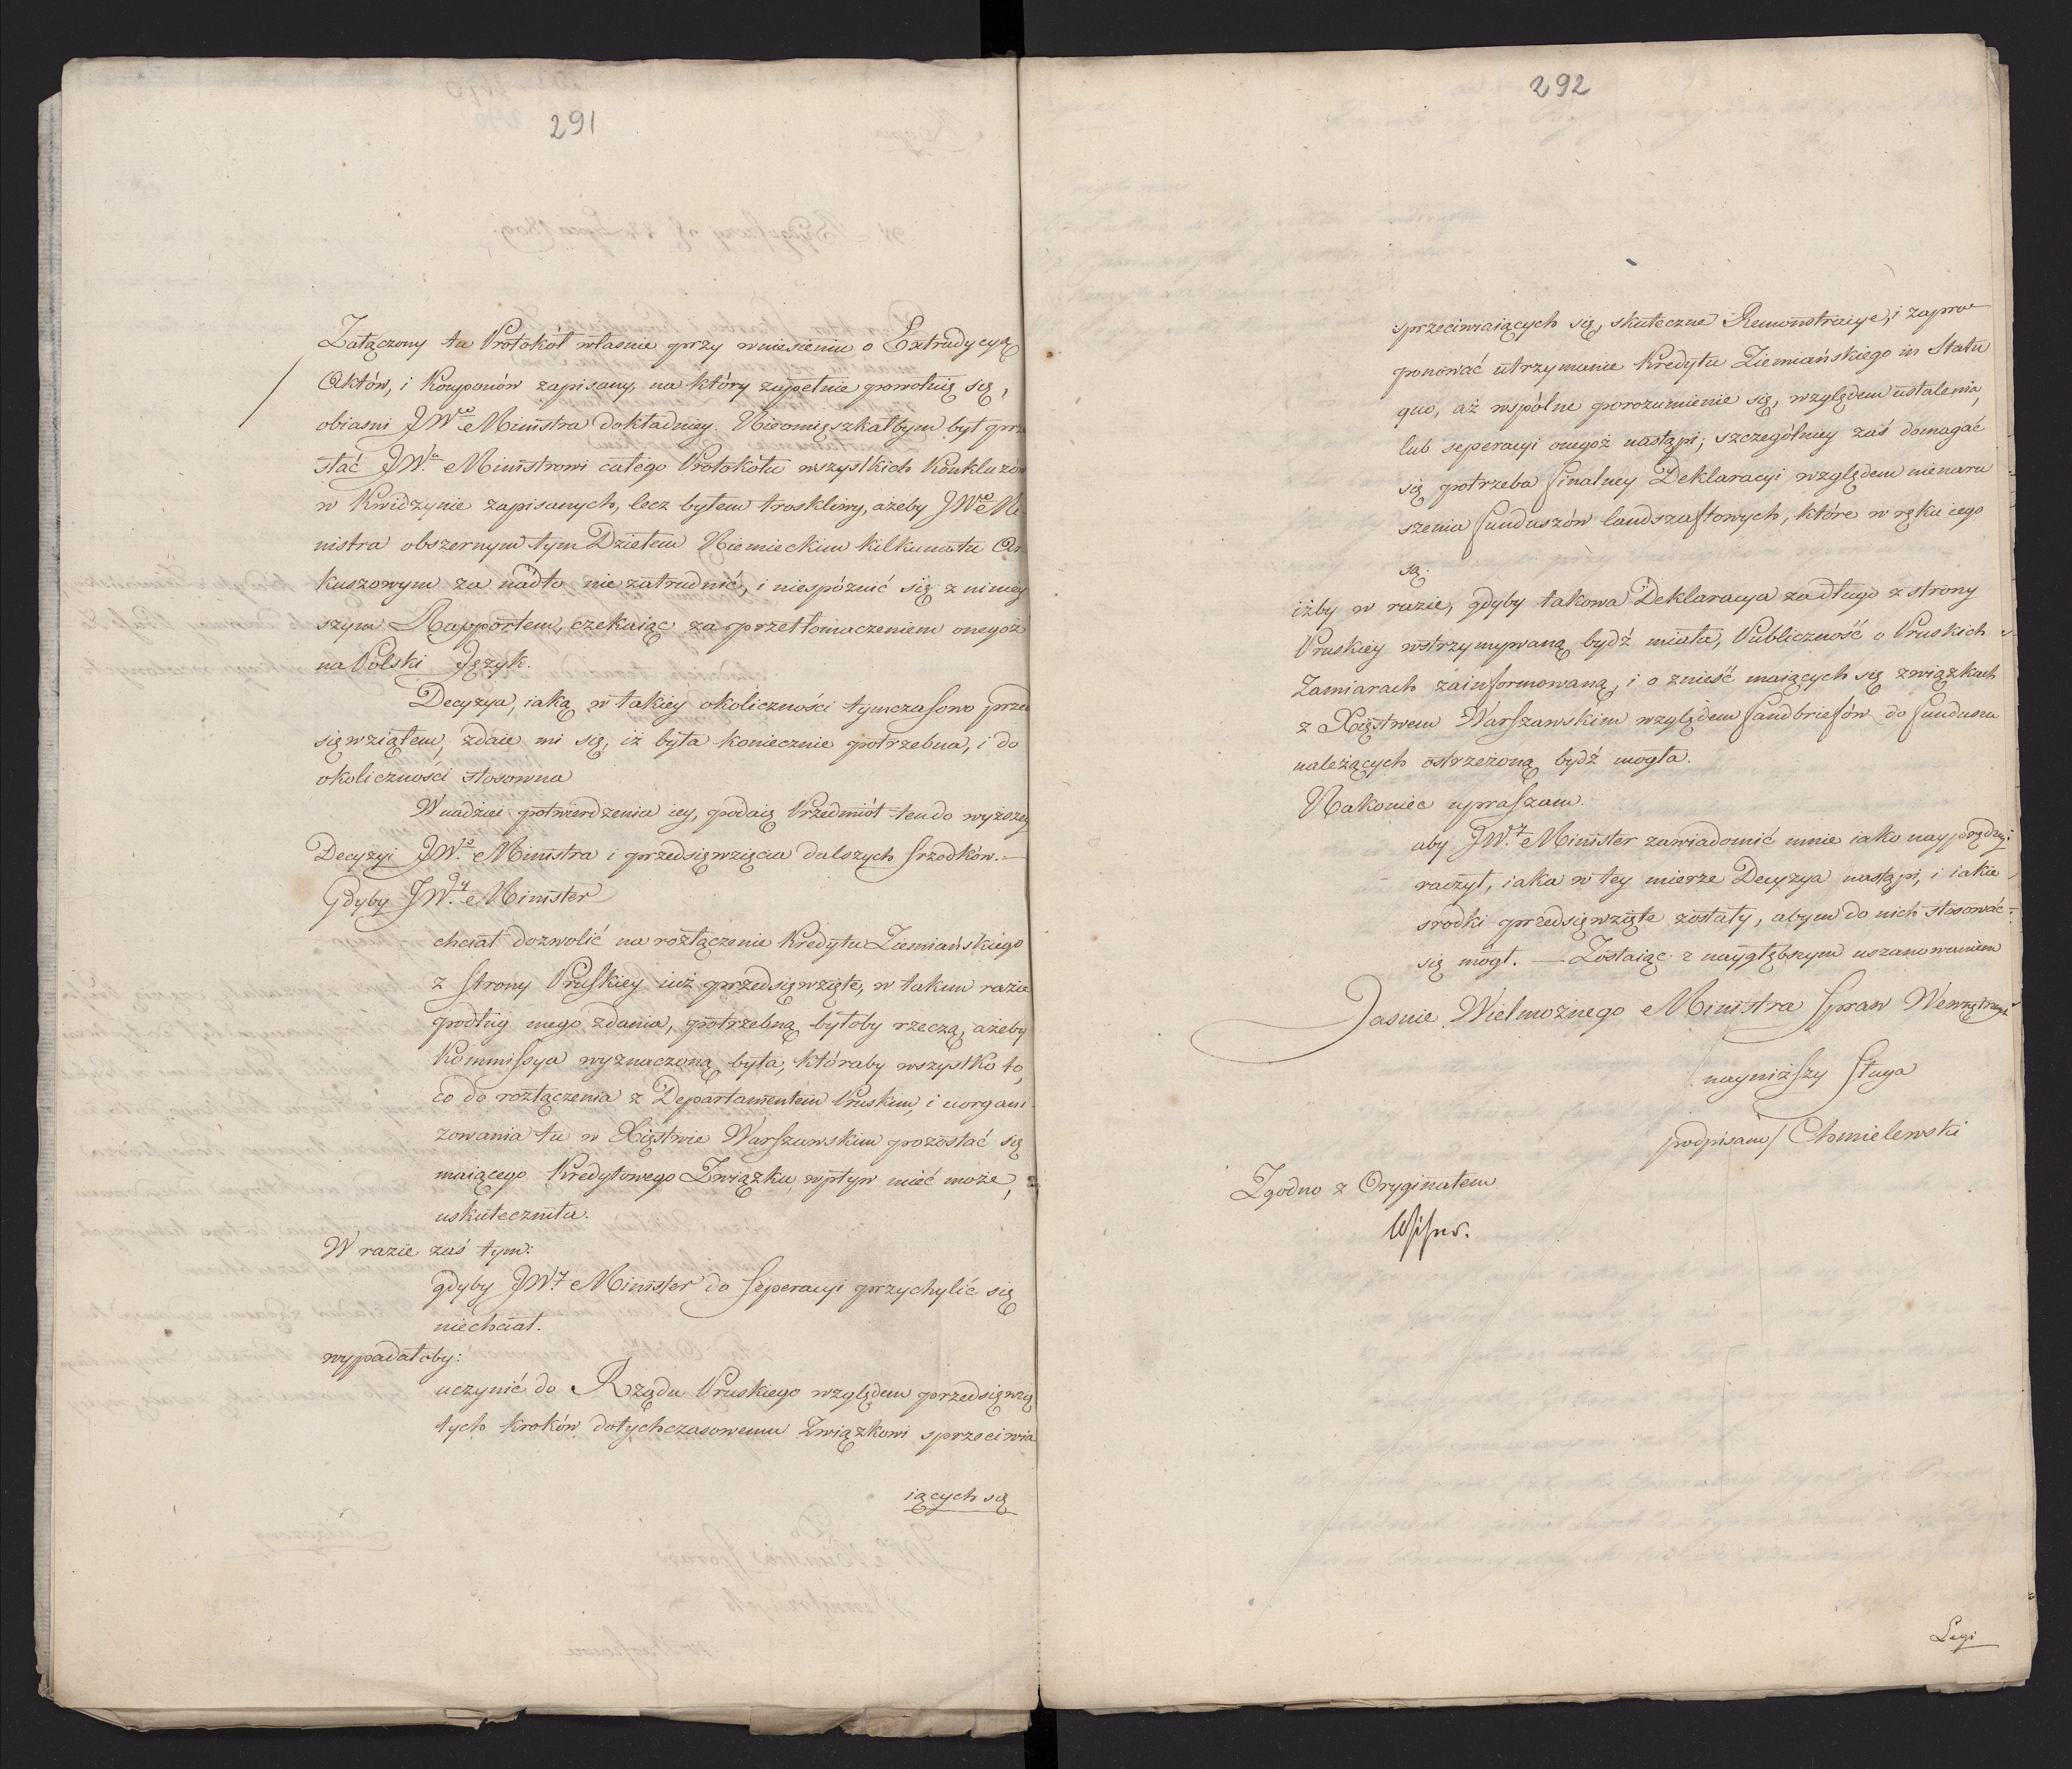 291
Załączony tu Protokół własnie przy wniesieniu o Extradycyą
Aktów, i Kouponów zapisany, na który zupełnie powołuię się,
obiasni JWo Ministra dokładniey. Nieomięszkałbym był prze
słać JW.u Ministrowi całego Protokółu wszystkich Konkluzów
w Kwidzynie zapisanych, lecz byłem troskliwy, ażeby JWo Mi
nistra obszernym tym Dziełem Niemieckim kilkunastu Ar
kuszowym za nadto nie zatrudnić, i niespóznić się z niniey
szym Rapportem, czekaiąc za przetłomaczeniem onegoż
na Polski Język.
Decyzya, iaką w takiey okoliczności tymczasowo przed
sięwziąłem, zdaie mi się, iż była koniecznie potrzebna, i do
okoliczności stosowna
W nadziei potwierdzenia iey, podaię Przedmiot ten do wyższey
Decyzyi JW.o Ministra i przedsięwzięcia dalszych srzodków.
Gdyby JW.y Minister
chciał dozwolić na rozłączenie Kredytu Ziemiańskiego
z strony Pruskiey iuż przedsięwzięte, w takim razie
podług mego zdania, potrzebną byłoby rzeczą, ażeby
Kommissya wyznaczoną była, któraby wszystko to,
co do rozłączenia z Departamentem Pruskim, i uorgani
zowania tu w Xięstwie Warszawskim pozostać się
maiącego Kredytowego Związku, wpływ mieć może,
uskuteczniła.
W razie zaś tym:
gdyby JW.y Minister do Seperacyi przychylić się
niechciał.
wypadałoby:
uczynić do Rządu Pruskiego względem przedsięwzię
tych kroków dotychczasowemu Związkowi sprzeciwia
iących się
292
sprzeciwiaiących się, skuteczne Remonstracye, i zapro
ponować utrzymanie Kredytu Ziemiańskiego in Statu
quo, aż wspólne porozumienie się, względem ustalenia,
lub seperacyi onegoż nastąpi; szczególniey zaś domagać
się potrzeba finalney Deklaracyi względem nienaru
szenia funduszów landszaftowych, które w ręku iego
są.
iżby w razie, gdyby takowa Deklaracya za długo z strony
Pruskiey wstrzymywaną bydź miała, Publiczność o Pruskich
Zamiarach zainformowaną, i o znieść maiących się związkach
z Xięstwem Warszawskim względem fandbriefów do funduszu
należących ostrzeżoną bydź mogła.
Nakoniec upraszam.
aby JW.y Minister zawiadomić mnie iako nayprędzey
raczył, iaka w tey mierze Decyzya nastąpi, i iakie
srodki przedsięwzięte zostały, abym do nich stosować
się mógł. — Zostaiąc z naygłębszym uszanowaniem
Jasnie Wielmożnego Ministra Spraw Wewnętrznych
nayniższy Sługa
podpisano/ Chmielewski
Zgodno z Oryginałem
Legi